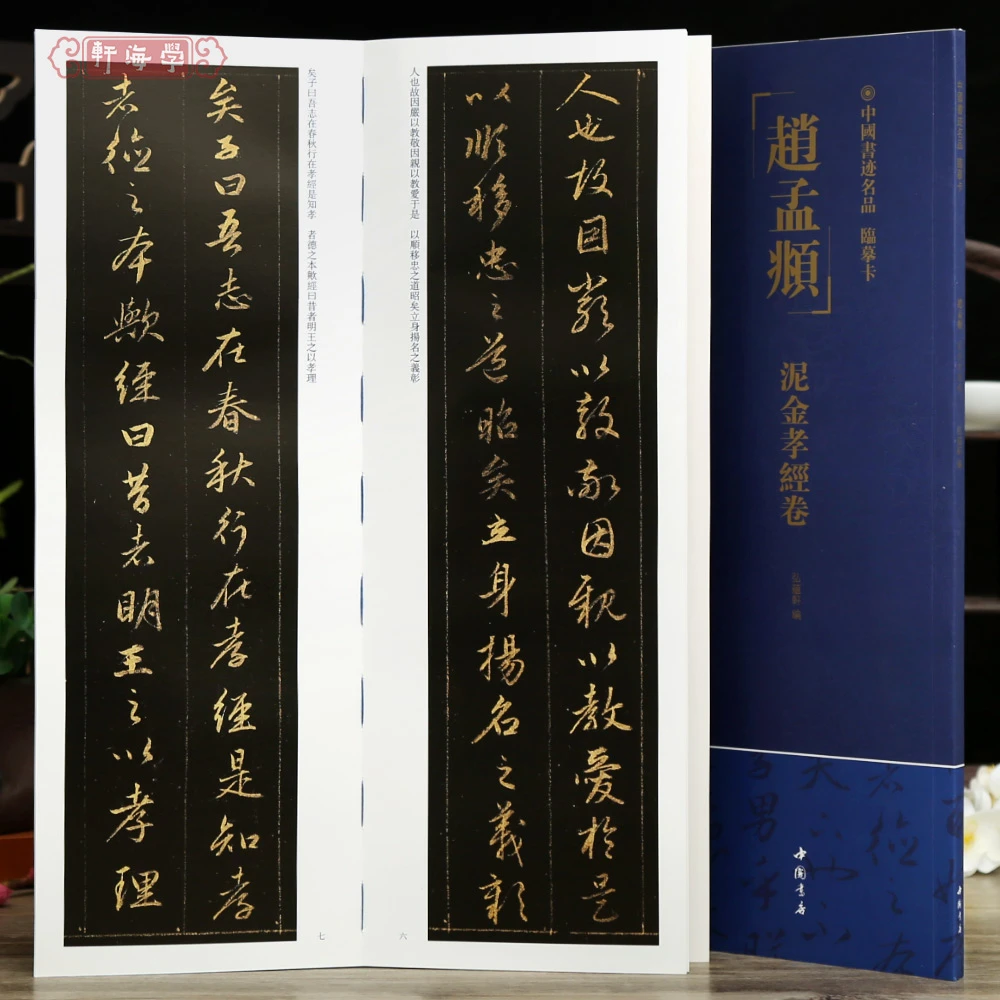 學海軒
中國書迹名品 臨摹卡
「趙孟頫」
泥金孝經卷
編
中國書店
人也故因嚴以教敬因親以教愛於是
以順移忠之道昭矣立身揚名之義彰
人也故因嚴以教敬因親以教愛于是 以順移忠之道昭矣立身揚名之義彰
六
矣子曰吾志在春秋行在孝經是知孝
者德之本歟經曰昔者明王之以孝理
矣子曰吾志在春秋行在孝經是知孝 者德之本歟經曰昔者明王之以孝理
七